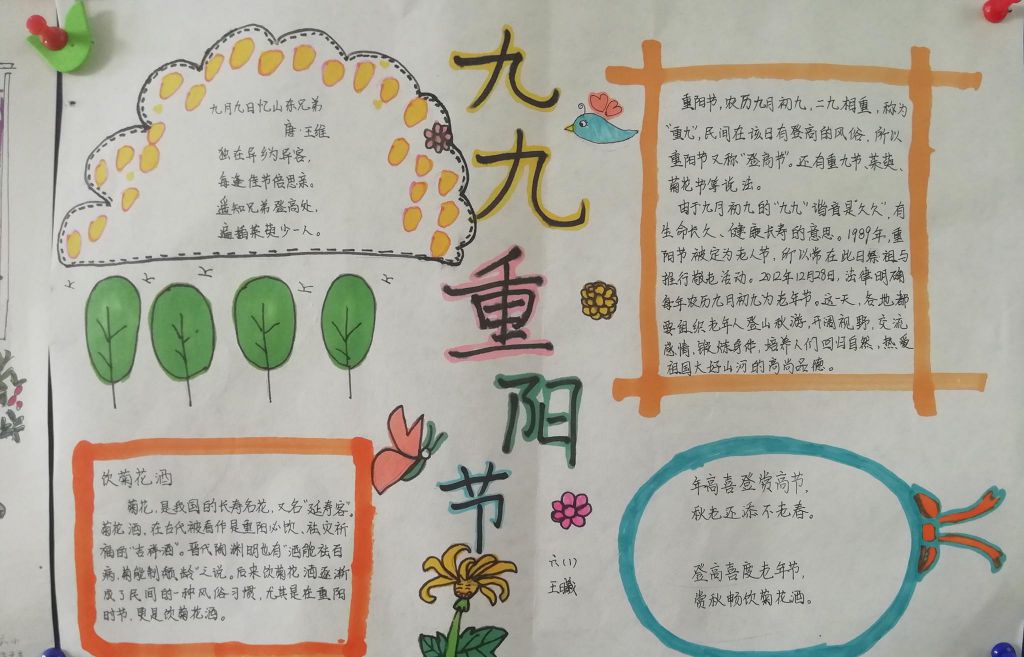 九九重阳节
九月九日忆山东兄弟
唐·王维
独在异乡为异客，
每逢佳节倍思亲。
遥知兄弟登高处，
遍插茱萸少一人。
重阳节，农历九月初九，二九相重，称为
“重九”，民间在该日有登高的风俗，所以
重阳节又称“登高节”。还有重九节、茱萸、
菊花节等说法。
由于九月初九的“九九”谐音是“久久”，有
生命长久、健康长寿的意思。1989年，重
阳节被定为老人节，所以常在此日祭祖与
推行敬老活动。2012年12月28日，法律明确
每年农历九月初九为老年节。这一天，各地都
要组织老年人登山秋游，开阔视野，交流
感情，锻炼身体，培养人们回归自然，热爱
祖国大好山河的高尚品德。
饮菊花酒
菊花，是我国的长寿名花，又名“延寿客”。
菊花酒，在古代被看作是重阳必饮、祛灾祈
福的“吉祥酒”。晋代陶渊明也有“酒能祛百
病，菊能制颓龄”之说。后来饮菊花酒逐渐
成了民间的一种风俗习惯，尤其是在重阳
时节，更是饮菊花酒。
年高喜登赏高节，
秋老还添不老春。
登高喜度老年节，
赏秋畅饮菊花酒。
六（1）
王曦